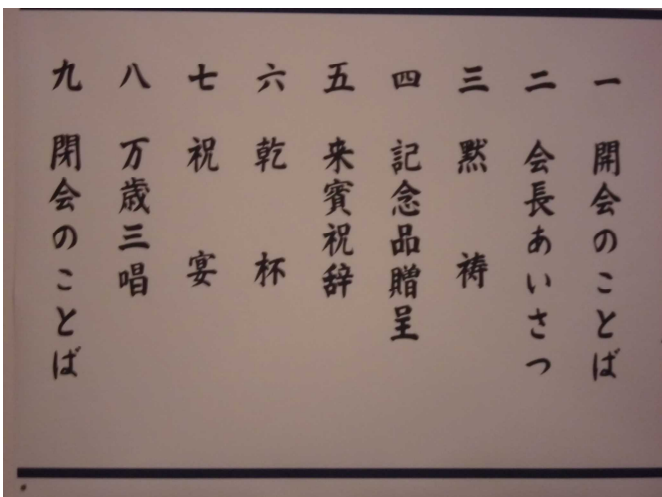 一 開会のことば
二 会長あいさつ
三 黙祷
四 記念品贈呈
五 来賓祝辞
六 乾杯
七 祝宴
八 万歳三唱
九 閉会のことば